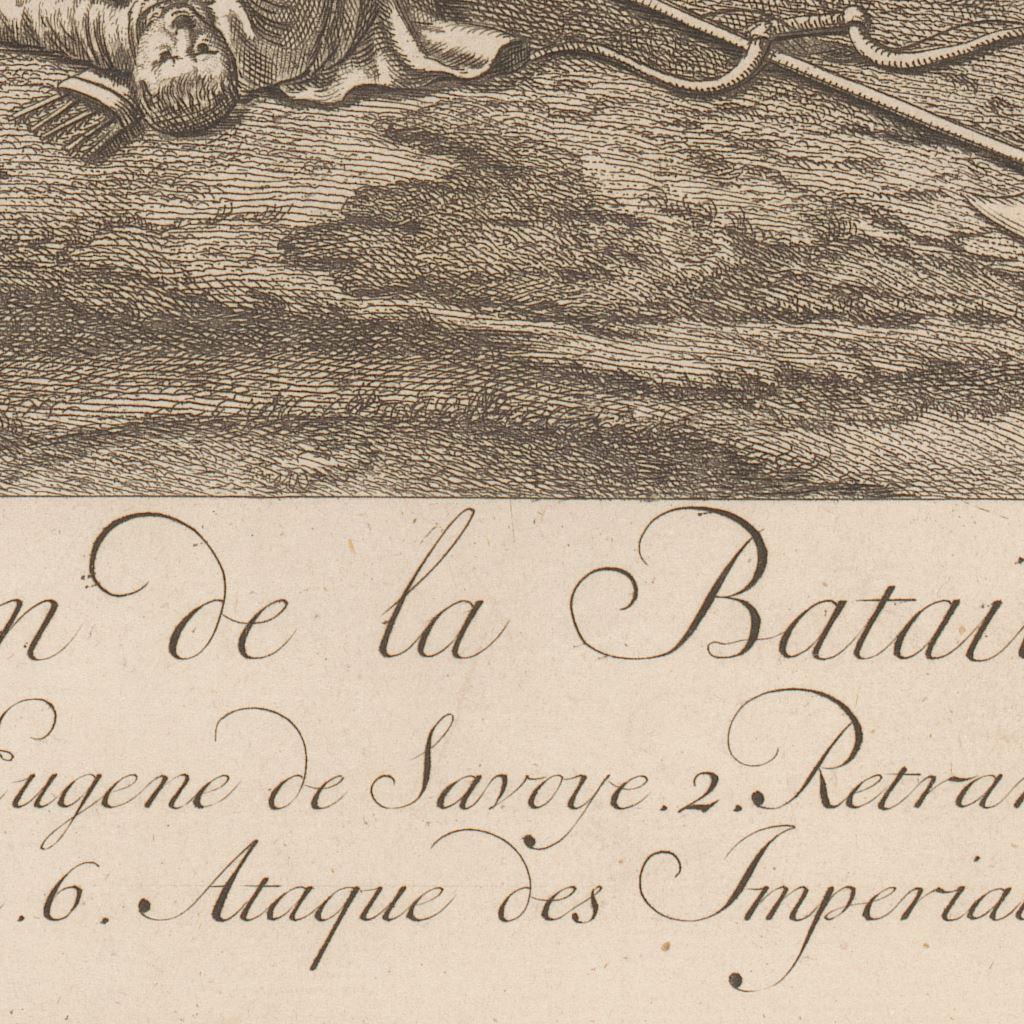 n de la Batail
Eugene de Savoye. 2. Retran
. 6. Ataque des Imperiau